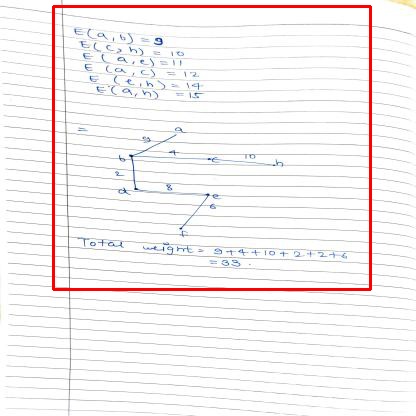 E(a,b) = 9
E(c,h) = 10
E(a,e) = 11
E(a,c) = 12
E(e,h) = 14
E(a,h) = 15
=
a
9
b 4 c 10 h
2
d 8 e
6
f
Total weight = 9+4+10+2+2+6
= 33.